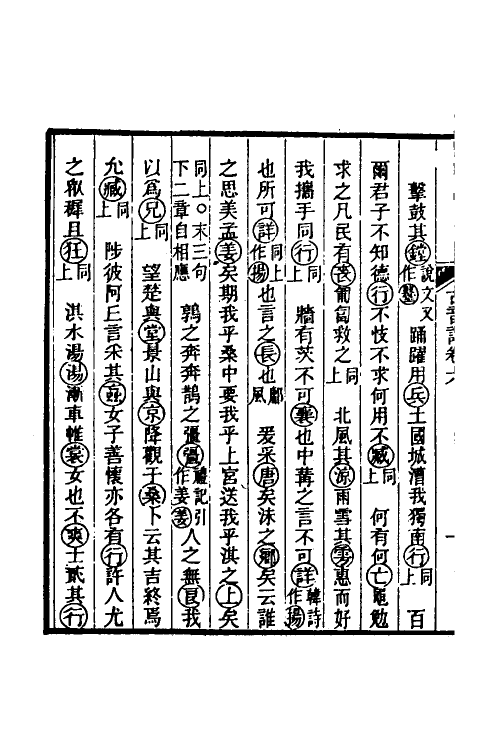 古音諧卷六
一
擊鼓其鏜說文又作鼞踊躍用兵土國城漕我獨南行同上　百
爾君子不知德行不忮不求何用不臧同上　何有何亡黽勉
求之凡民有喪匍匐救之同上　北風其涼雨雪其雱惠而好
我攜手同行同上　牆有茨不可襄也中冓之言不可詳韓詩作揚
也所可詳同上作揚也言之長也鄘風　爰采唐矣沬之鄉矣云誰
之思美孟姜矣期我乎桑中要我乎上宮送我乎淇之上矣
同上○末三句下二章自相應　鶉之奔奔鵲之彊彊禮記引作姜姜人之無良我
以爲兄同上　望楚與堂景山與京降觀于桑卜云其吉終焉
允臧同上　陟彼阿丘言采其蝱女子善懷亦各有行許人尤
之眾穉且狂同上　淇水湯湯漸車帷裳女也不爽士貳其行